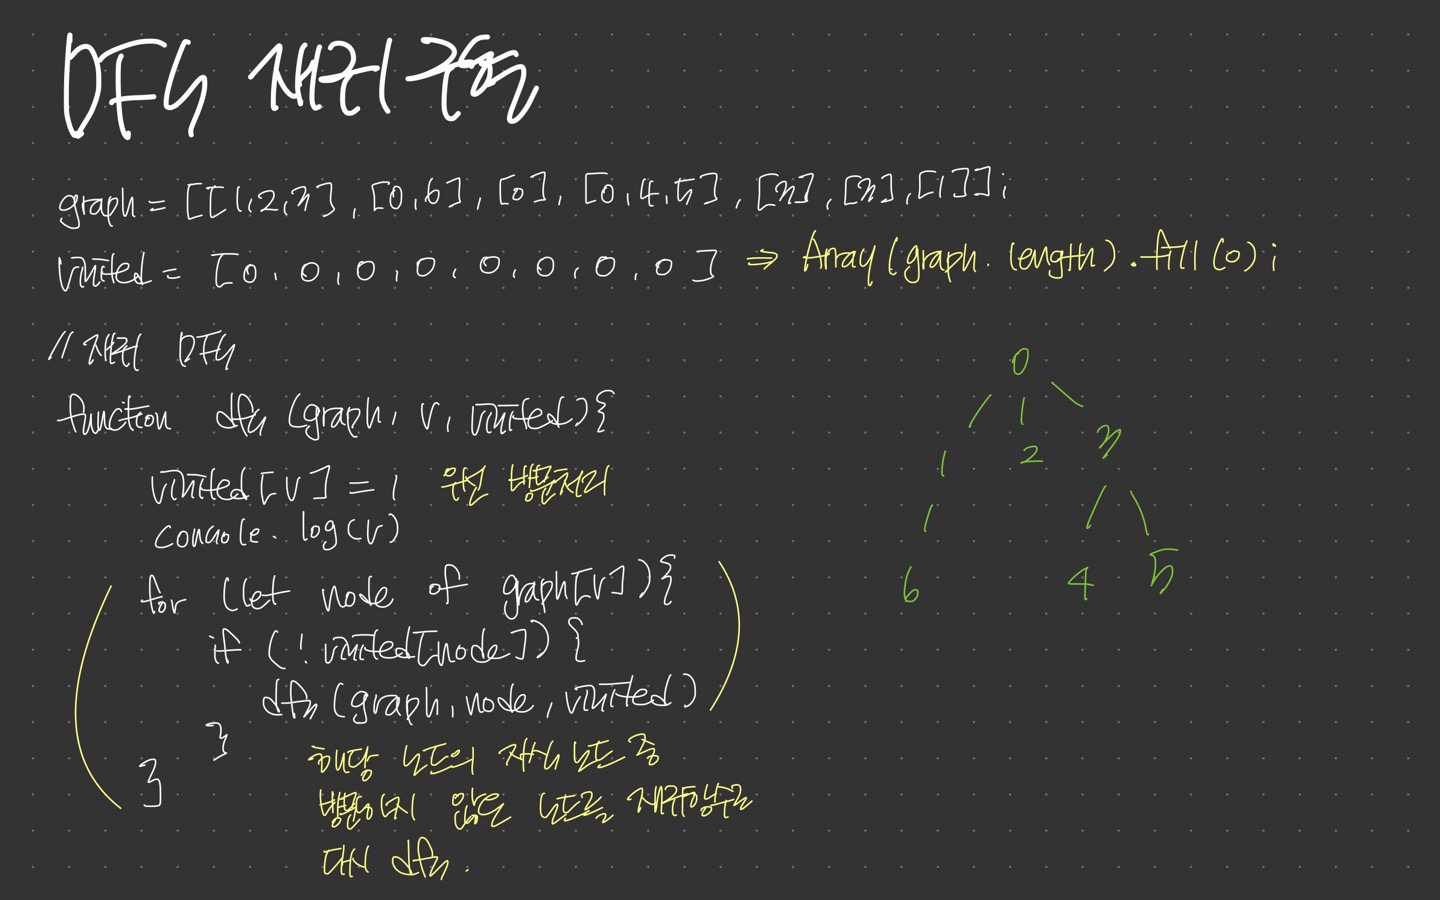 DFS 재귀 구현
graph = [[1,2,3], [0,6], [0], [0,4,5], [3], [3], [1]];
visited = [0, 0, 0, 0, 0, 0, 0, 0] ⇒ Array(graph.length).fill(0);
// 재귀 DFS
function dfs (graph, v, visited){
visited[v] = 1 우선 방문처리
console.log(v)
for (let node of gaph[v]){
if (!visited[node]) {
dfs(graph, node, visited)
}
}
해당 노드의 자식 노드 중
방문하지 않은 노드를 재귀함수로
다시 dfs.
0
/ | \
1 2 3
/ / \
6 4 5